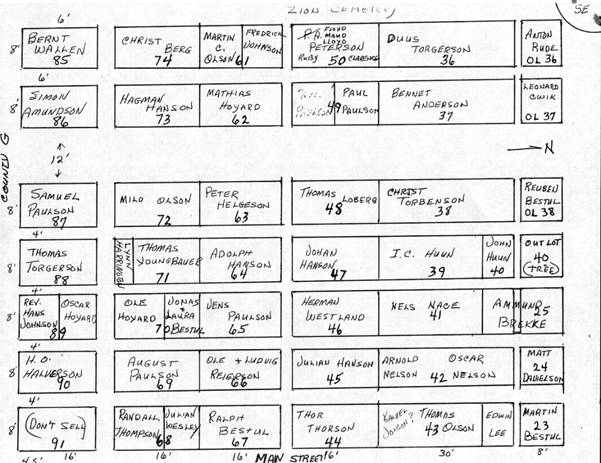 ZION CEMETERY
SE
6'
8' BERNT WALLEN 85
CHRIST BERG 74
MARTIN C. OLSON 61
FREDRICK JOHNSON
P.A. FLOYD MAUD LLOYD PETERSON RUBY 50 CLARENCE
DUUS TORGERSON 36
ANTON RUDE OL 36
6'
8' SIMON AMUNDSON 86
HAGMAN HANSON 73
MATHIAS HOYARD 62
PAULSON 49
PAUL PAULSON
BENNET ANDERSON 37
LEONARD CWIK OL 37
12'
N
COUNTY G
8' SAMUEL PAULSON 87
MILO OLSON 72
PETER HELGESON 63
THOMAS LOBERG 48
CHRIST TORBENSON 38
REUBEN BESTUL OL 38
4'
8' THOMAS TORGERSON 88
LYNN
THOMAS YOUNGBAUER 71
ADOLPH HANSON 64
JOHAN HANSON 47
I.C. HUUN 39
JOHN HUUN 40
OUT LOT 40 (TREE)
4'
8' REV. HANS JOHNSON 89
OSCAR HOYARD
OLE HOYARD 70
JONAS LAURA BESTUL
JENS PAULSON 65
HERMAN WESTLAND 46
NELS NAGE 41
AMMUND BREKKE 25
4'
8' H.O. HALVERSON 90
AUGUST PAULSON 69
OLE + LUDVIG REIERSON 66
JULIAN HANSON 45
ARNOLD NELSON 42
OSCAR NELSON
MATT 24 DANIELSON
4'
8' (DON'T SELL) 91
RANDALL THOMPSON 68
JULIAN WESLEY
RALPH BESTUL 67
THOR THORSON 44
THOMAS 43 OLSON
EDWIN LEE
MARTIN 23 BESTUL
4.5' 16' 16' 16' MAIN STREET 16' 30' 8'